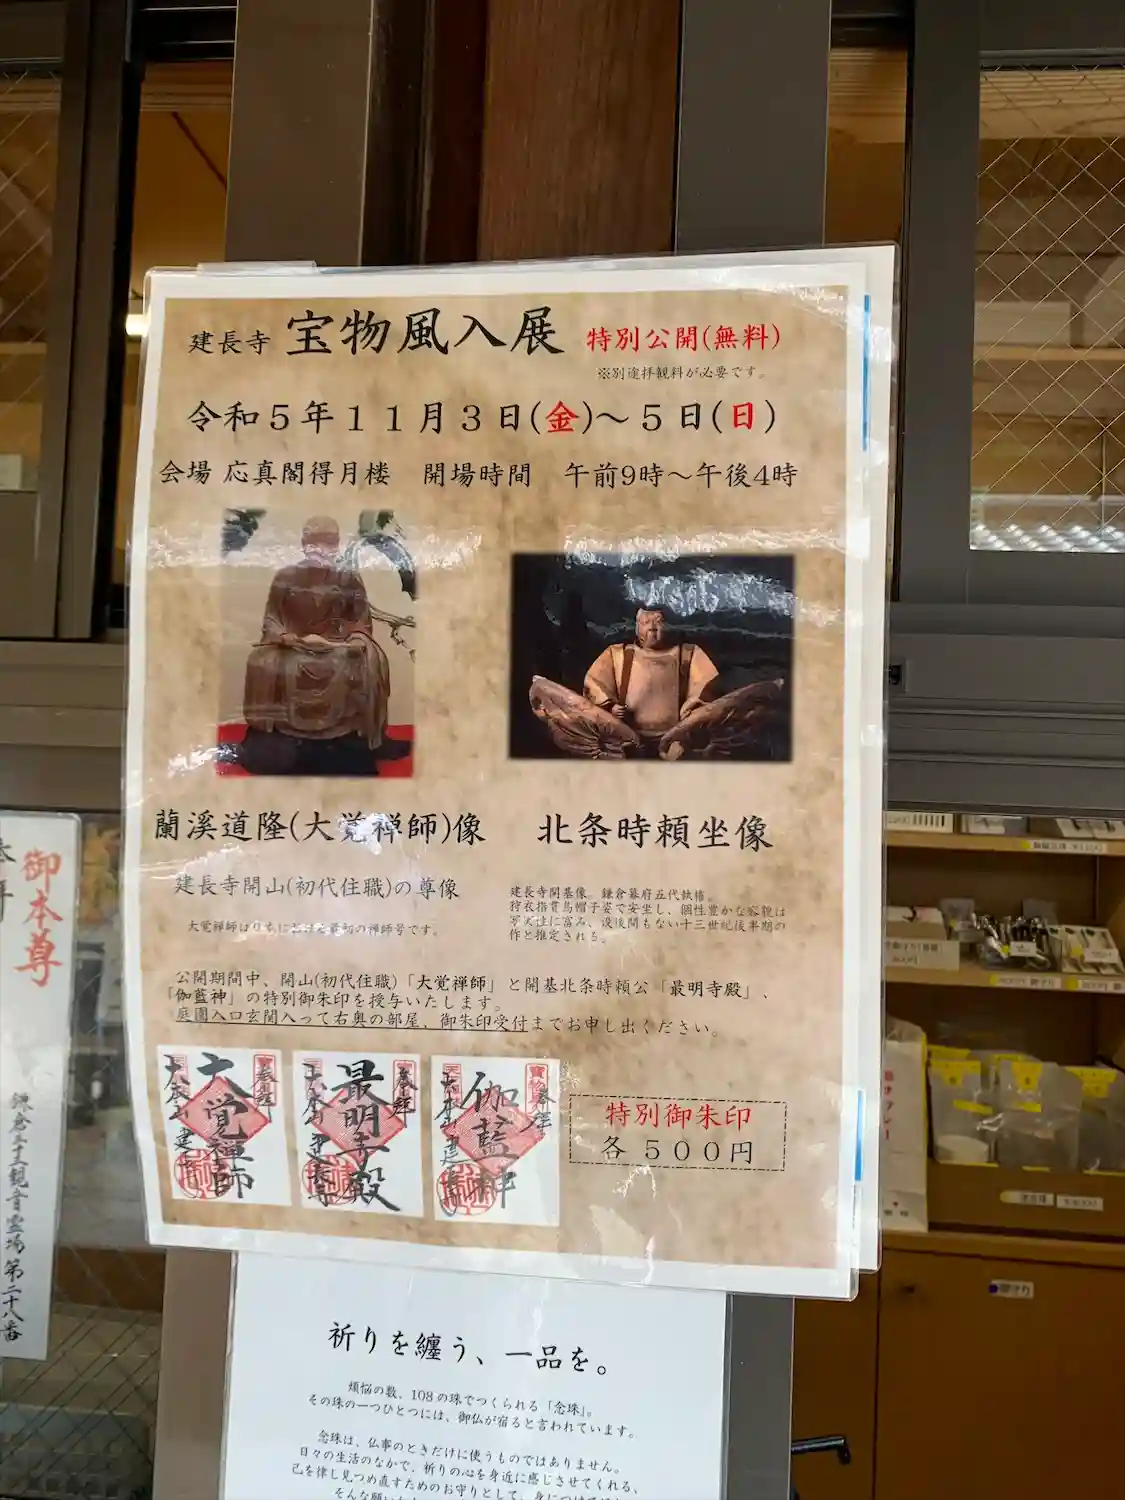 建長寺 宝物風入展 特別公開(無料)
※別途拝観料が必要です。
令和5年11月3日(金)～5日(日)
会場 応真閣得月楼 開場時間 午前9時～午後4時
蘭溪道隆(大覚禅師)像
建長寺開山(初代住職)の尊像
大覚禅師は
の禅師号です。
北条時頼坐像
建長寺開基像。鎌倉幕府五代執権。
狩衣指貫烏帽子姿で安坐し、個性豊かな容貌は
写実性に富み、没後間もない十三世紀後半期の
作と推定される。
公開期間中、開山(初代住職)「大覚禅師」と開基北条時頼公「最明寺殿」、
「伽藍神」の特別御朱印を授与いたします。
庭園入口玄関入って右奥の部屋、御朱印受付までお申し出ください。
奉拝
大覚禅師
大本山建長寺
奉拝
最明寺殿
大本山建長寺
奉拝
伽藍神
大本山建長寺
特別御朱印
各500円
祈りを纏う、一品を。
煩悩の数、108の珠でつくられる「念珠」。
その珠の一つひとつには、御仏が宿ると言われています。
念珠は、仏事のときだけに使うものではありません。
日々の生活のなかで、祈りの心を身近に感じさせてくれる、
己を律し見つめ直すためのお守りとして、身につけて
そんな願い
御本尊
鎌倉三十三観音霊場第二十八番